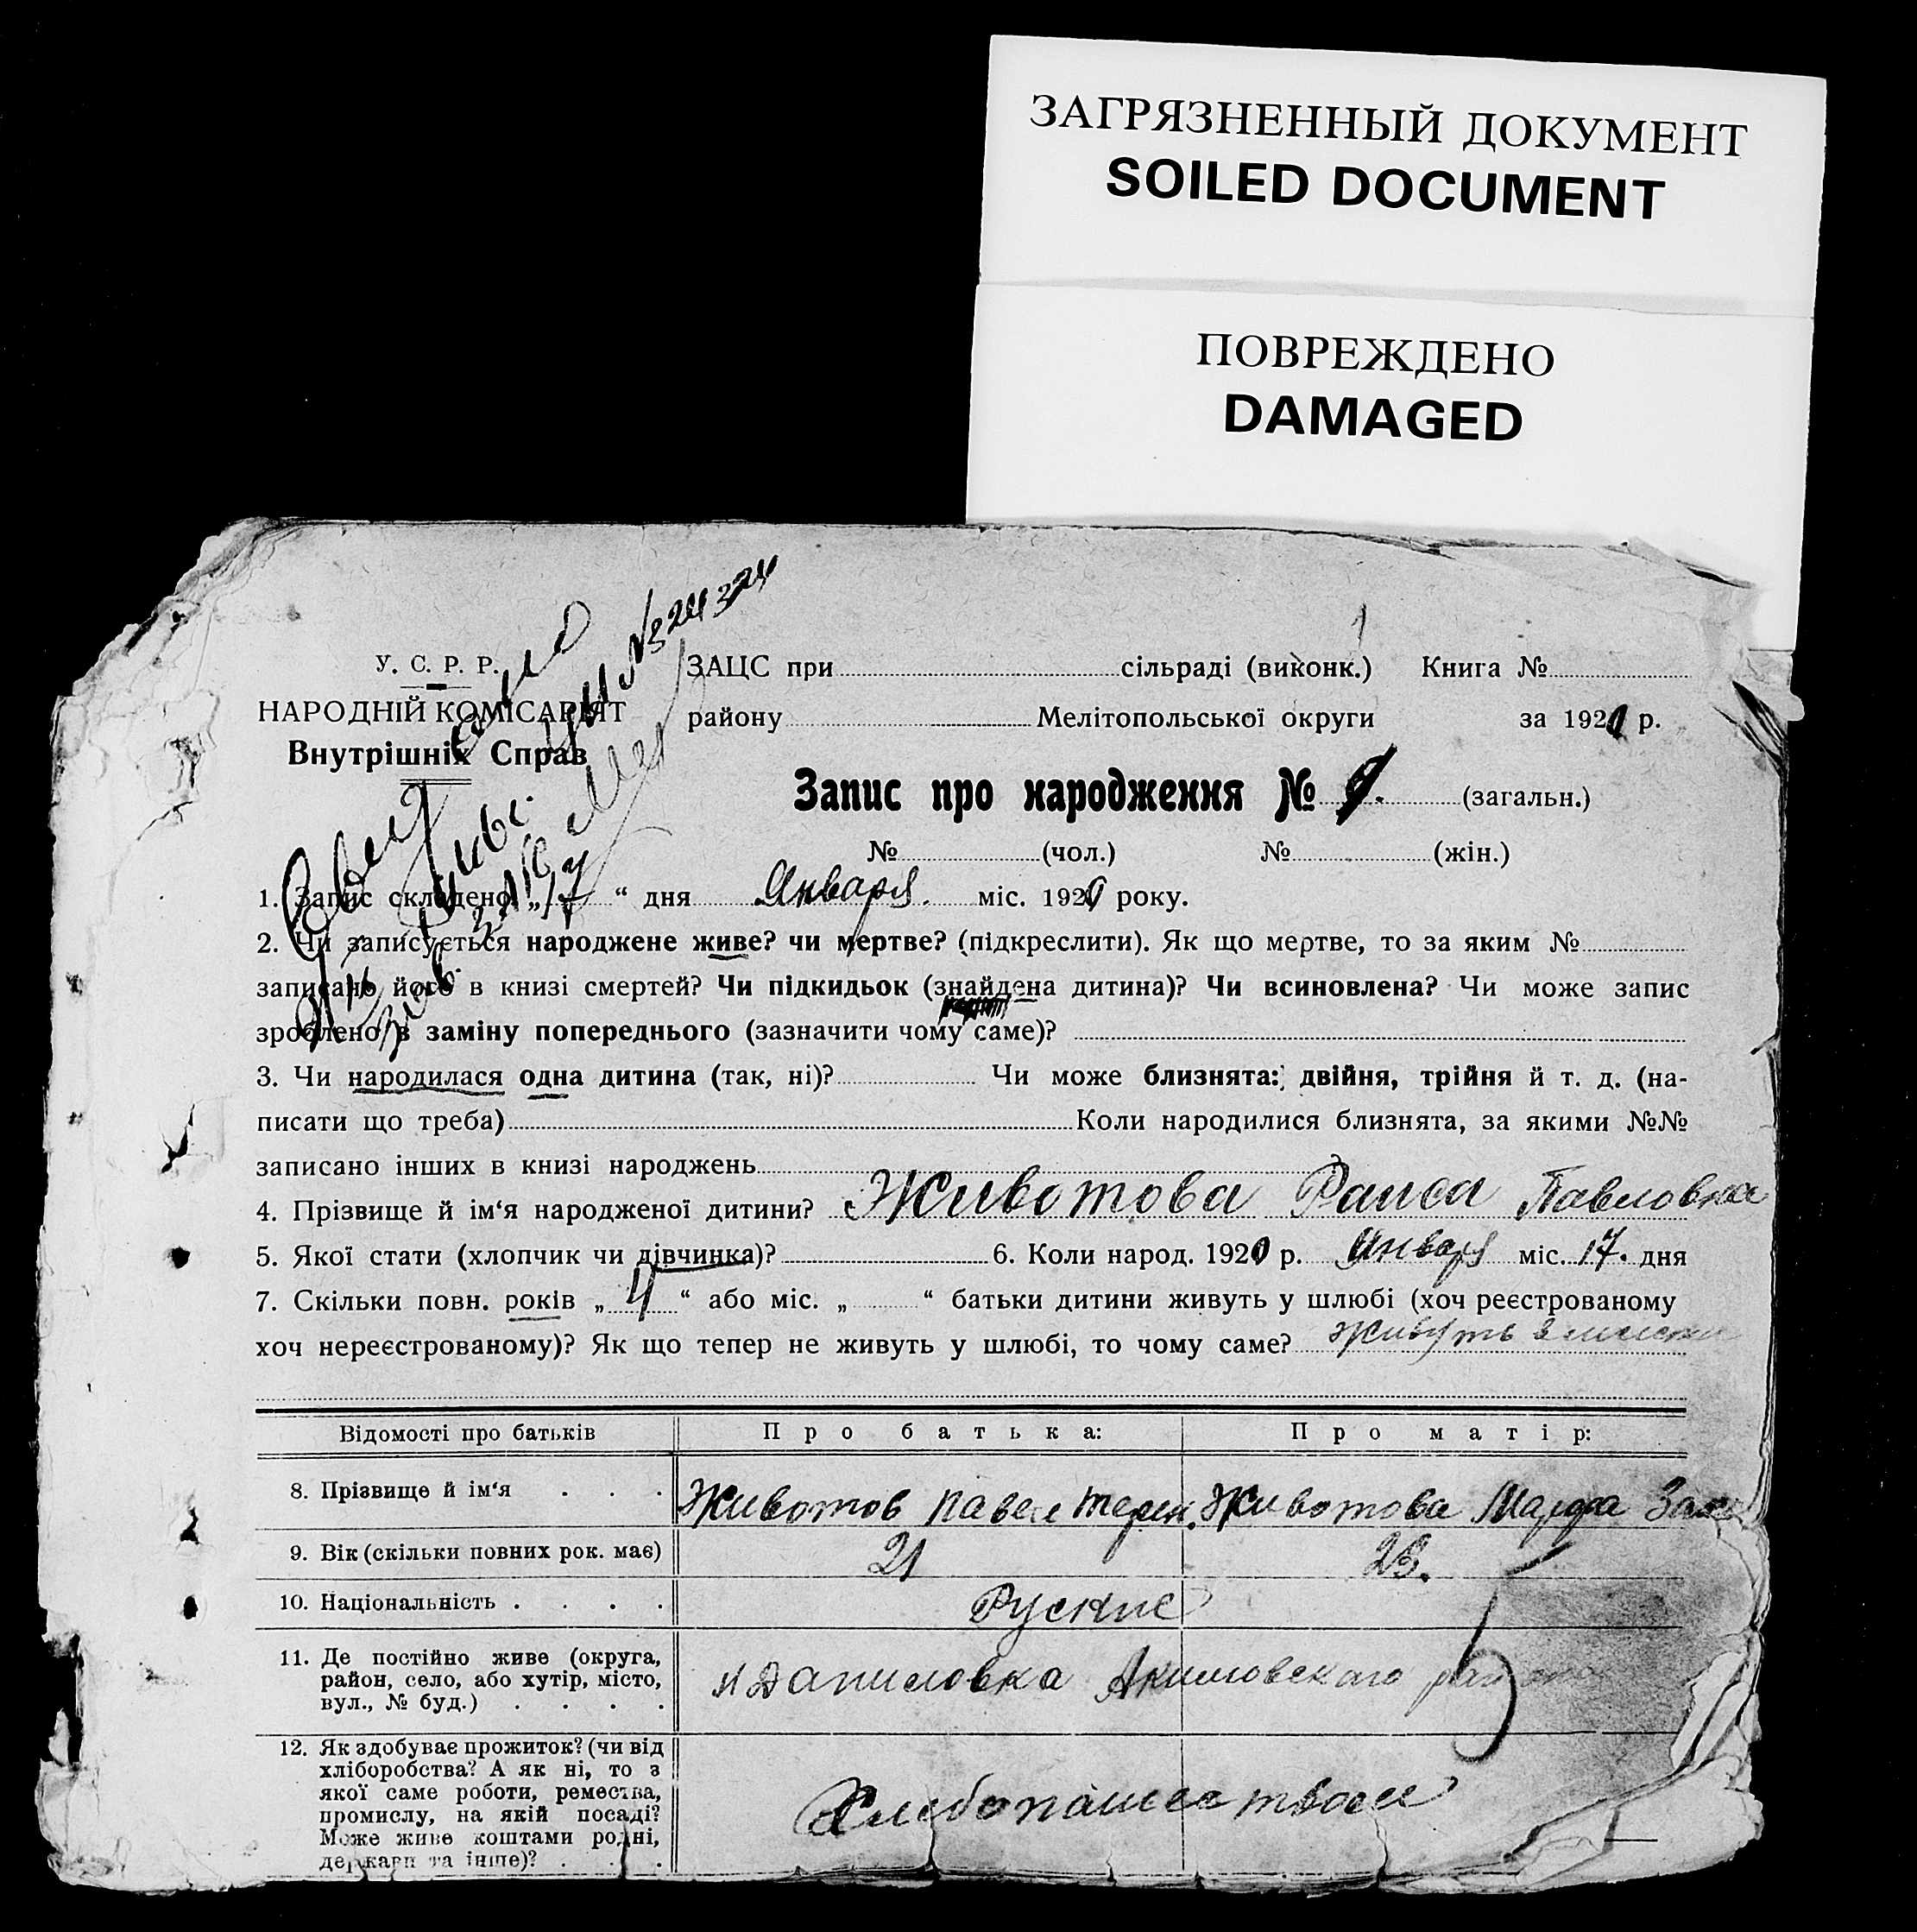 ЗАГРЯЗНЕННЫЙ ДОКУМЕНТ
SOILED DOCUMENT
ПОВРЕЖДЕНО
DAMAGED
У. С. Р. Р.
НАРОДНІЙ КОМІСАРІЯТ
Внутрішніх Справ
ЗАЦС при сільраді (виконк.) Книга №
району Мелітопольської округи за 192 р.
Запис про народження № (загальн.)
№ (чол.) № (жін.)
1. Запис складено „17“ дня Января. міс. 192 року.
2. Чи записується народжене живе? чи мертве? (підкреслити). Як що мертве, то за яким №
записано його в книзі смертей? Чи підкидьок (знайдена дитина)? Чи всиновлена? Чи може запис
зроблено в заміну попереднього (зазначити чому саме)?
3. Чи народилася одна дитина (так, ні)? Чи може близнята: двійня, трійня й т. д. (на-
писати що треба) Коли народилися близнята, за якими №№
записано інших в книзі народжень ?
4. Прізвище й ім‘я народженої дитини? Животова Раиса Павловна
5. Якої стати (хлопчик чи дівчинка)? 6. Коли народ. 192 р. Январ міс. 17. дня
7. Скільки повн. років „4“ або міс. „ “ батьки дитини живуть у шлюбі (хоч реєстрованому
хоч нереєстрованому)? Як що тепер не живуть у шлюбі, то чому саме? живуть в
Відомості про батьків Про батька: Про матір:
8. Прізвище й ім‘я . . . Животов Павел Терен. Животова Марфа
9. Вік (скільки повних рок. має) 21 23.
10. Національність . . . . Руские
11. Де постійно живе (округа,
район, село, або хутір, місто,
вул., № буд.) . . . .
Даниловка Акимовскаго района
12. Як здобуває прожиток? (чи від
хліборобства? А як ні, то з
якої саме роботи, ремества,
промислу, на якій посаді?
Може живе коштами родні,
держави та інше)? . . .
Хлебопашеством